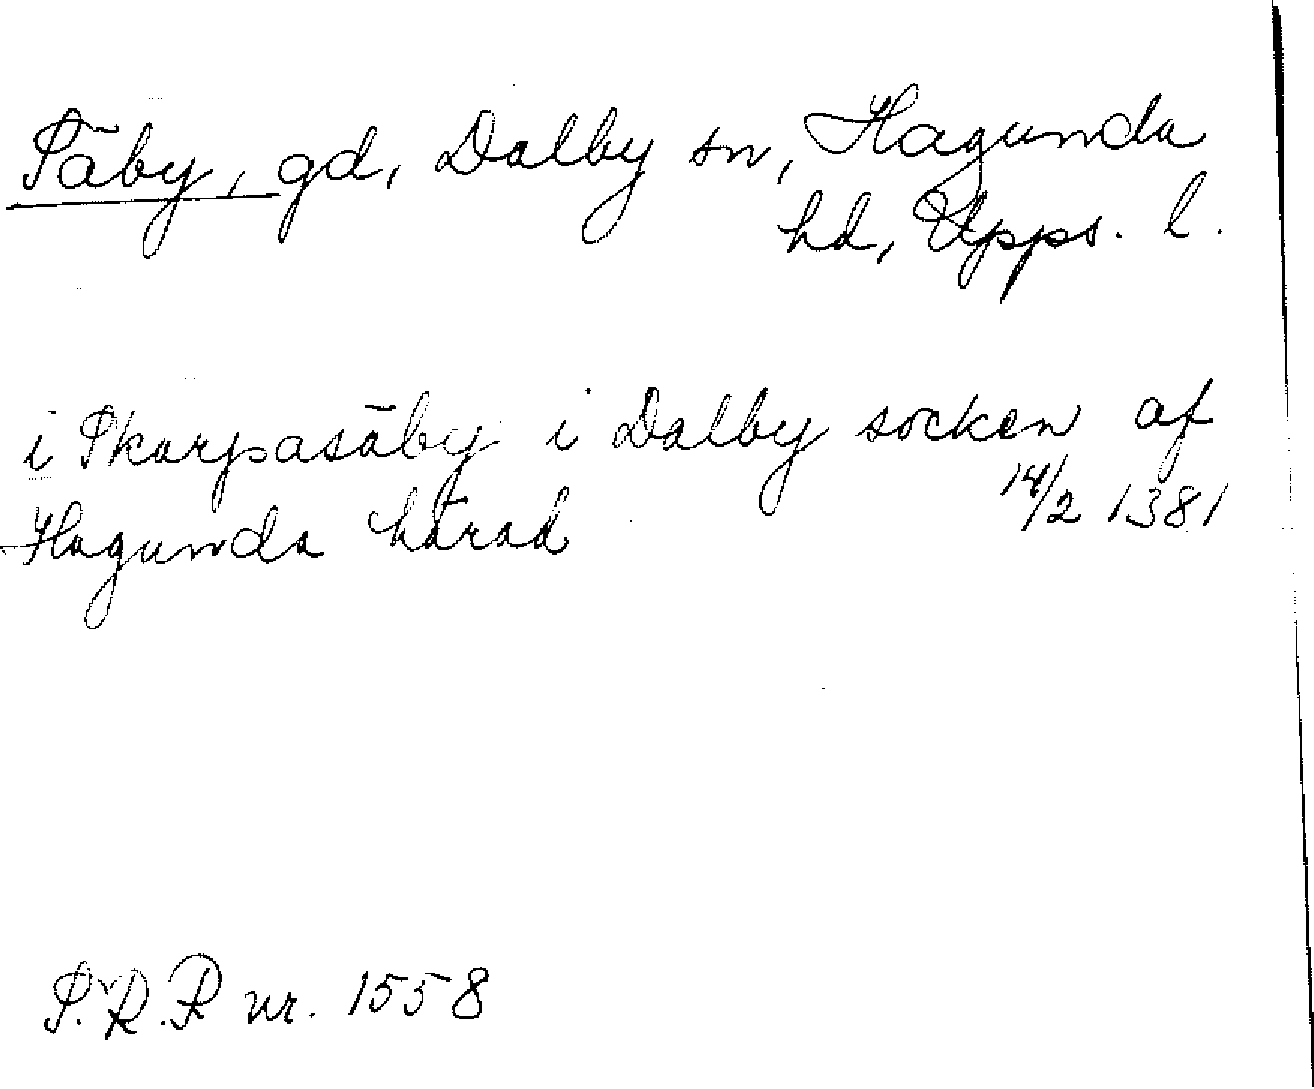 Säby, gd, Dalby sn, Hagunda
hd, Upps. l.
i Skarpasäby i Dalby socken af
Hagunda härad 14/2 1381
S.R.P nr. 1558